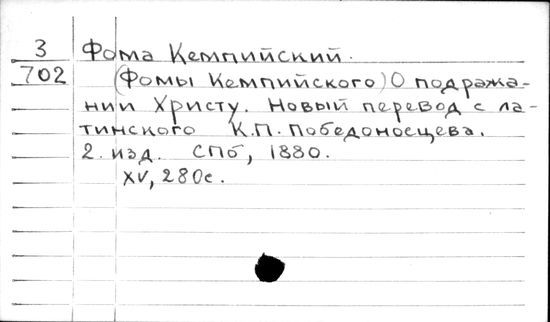 3 Фома Кемпийский.
702 (Фомы Кемпийского) О подража-
нии Христу. Новый перевод с ла-
тинского К.П. Победоносцева.
2. изд. СПб, 1880.
XV, 280с.